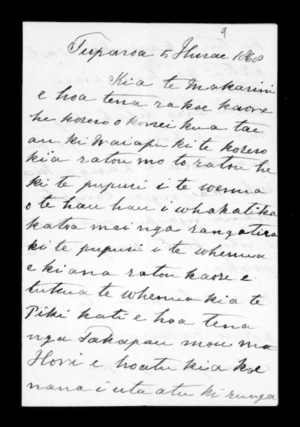 9
Tuparoa 5 Hurae 1868
Kia te Makarini
e hoa tena ra koe kaore
he korero o konei kua tae
au ki Waiapu ki te korero
kia ratou mo to ratou he
ki te pupuri i te wenua
o te hau hau i whakatika
katoa mai nga rangatira
ki te pupuri i te whenua
e kiana ratou kaore e
tukua te whenua kia te
Piki kati e hoa tena
nga Takapau mou ma
Hori e hoatu kia koe
nana i uta atu ki runga